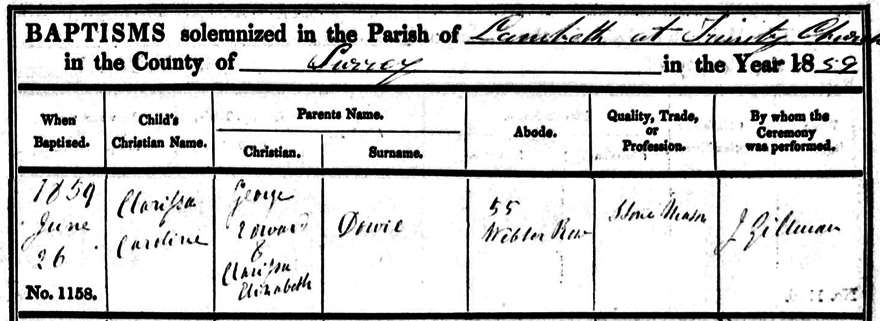 BAPTISMS solemnized in the Parish of Lambeth at Trinity Church
in the County of Surrey in the Year 1859
When Baptized.
Child's Christian Name.
Parents Name.
Christian.
Surname.
Abode.
Quality, Trade, or Profession.
By whom the Ceremony was performed.
1859
June
26
No. 1158.
Clarissa
Caroline
George
Edward
&
Clarissa
Elizabeth
Dowie
55
Webber Row
Stone Mason
J Gillman